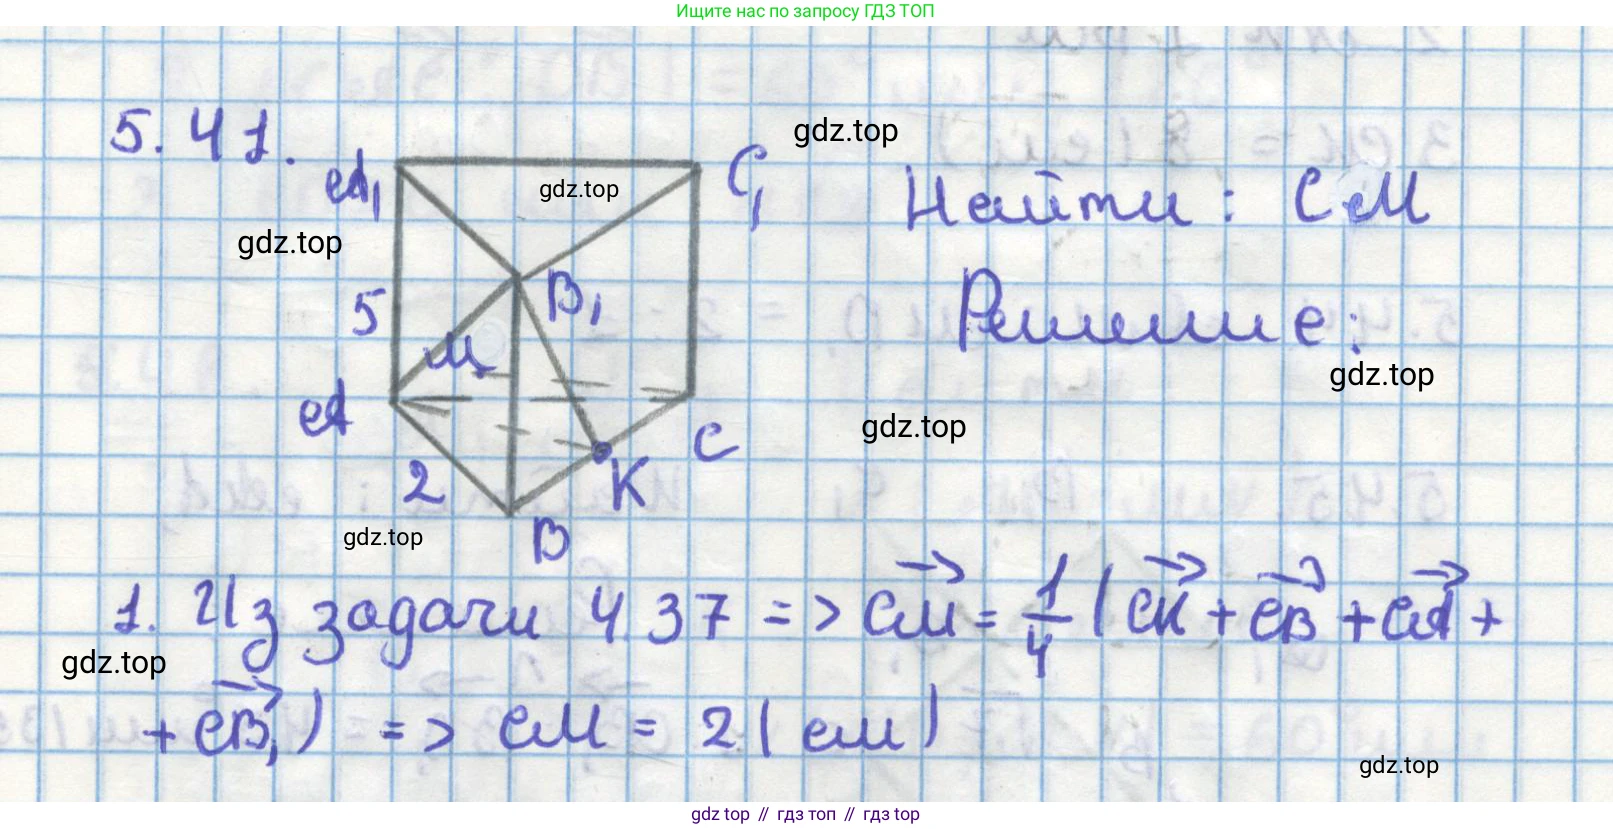 Ищите нас по запросу ГДЗ ТОП
5.41.
gdz.top
A₁
gdz.top
C₁
Найти: CM
gdz.top
5
B₁
Решение:
M
gdz.top
A
gdz.top
C
2
K
gdz.top
B
1. Из задачи 4.37 => CM = 1/4 (CK + CB + CA +
gdz.top
+ CB₁) => CM = 2 (см)
gdz.top
gdz.top // гдз топ // gdz.top